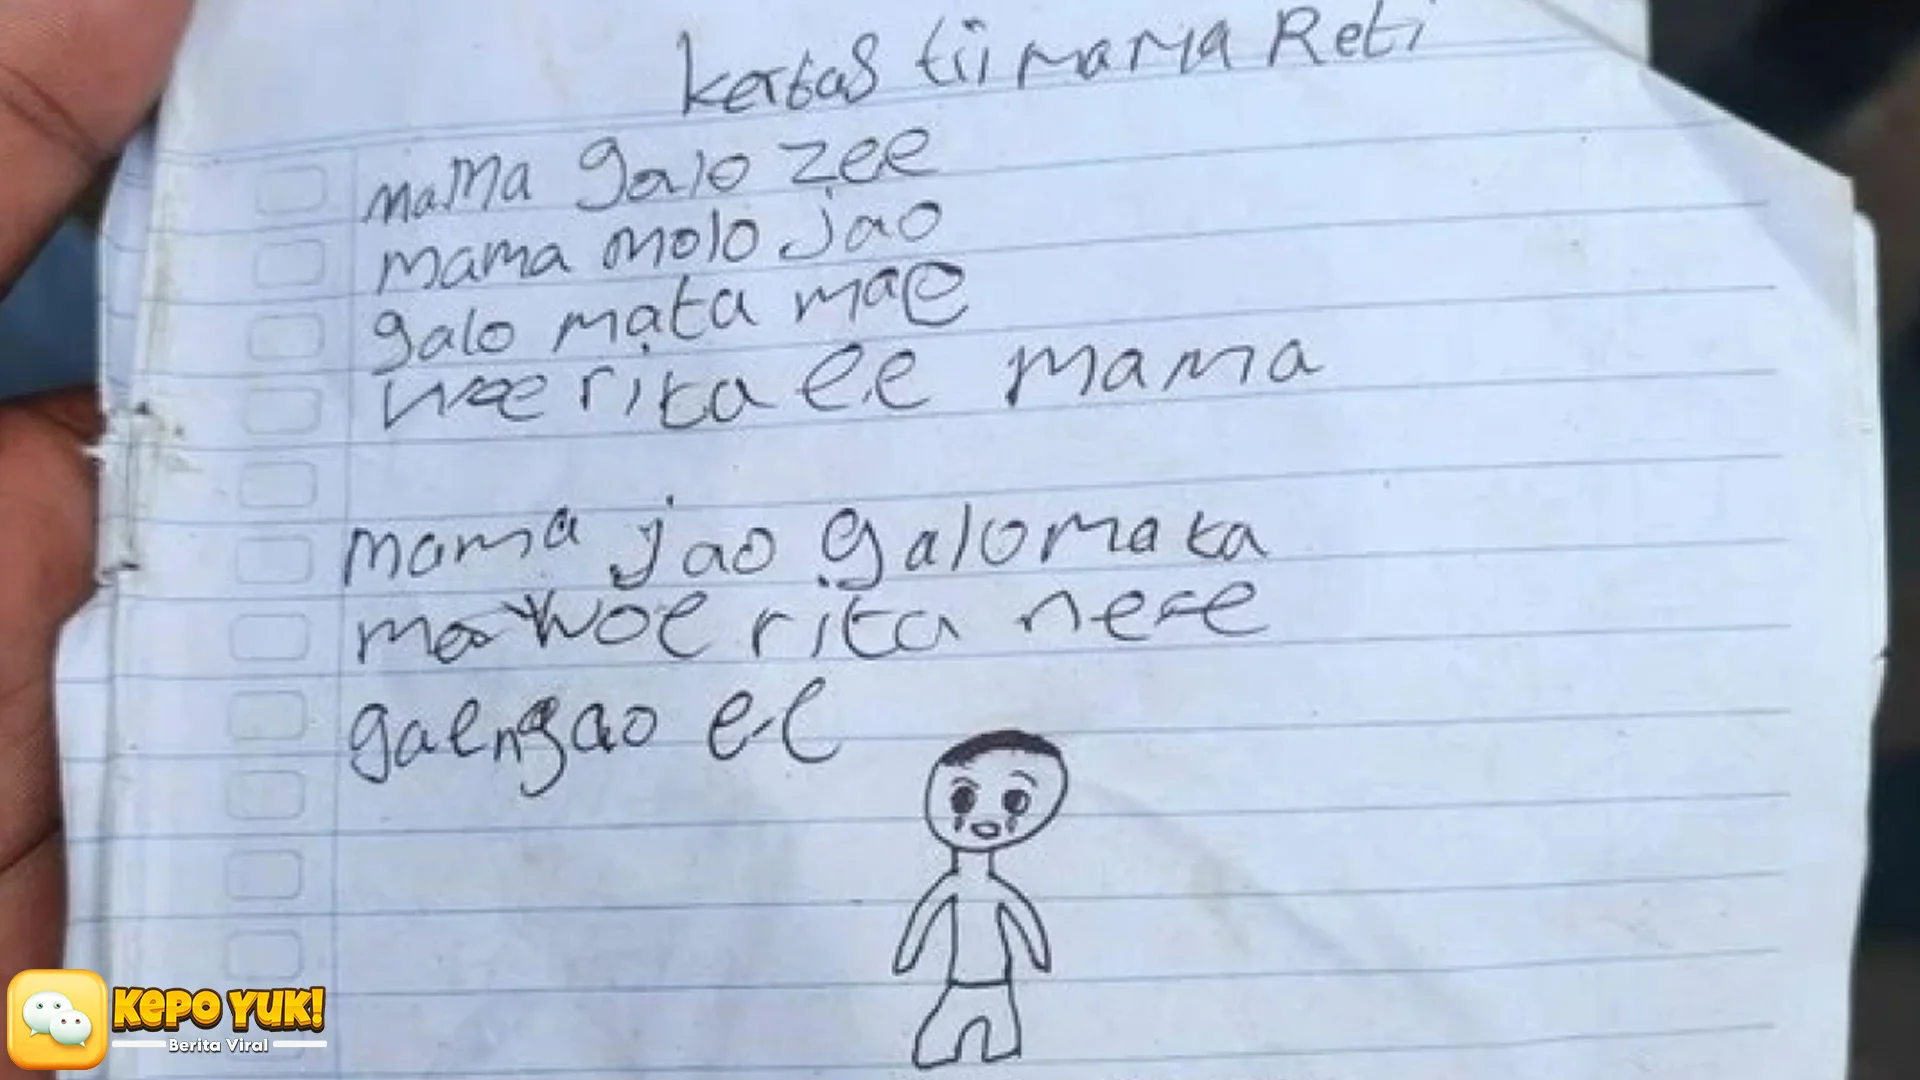 Kertas tii mama Reti
mama galo zee
mama molo jao
galo mata mae
woe rita ee mama
mama jao galo mata
mae woe rita nee
gaengao ee
KEPO YUK!
Berita Viral